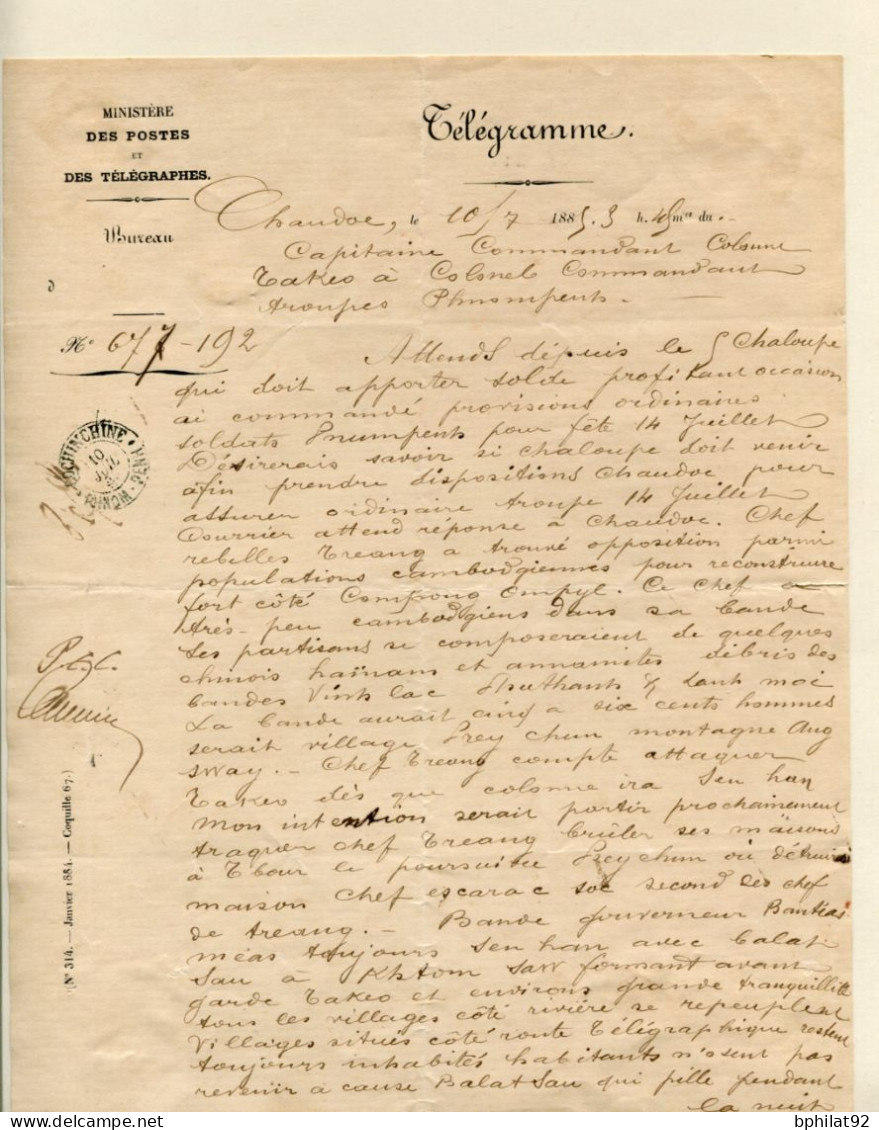 MINISTÈRE
DES POSTES
ET
DES TÉLÉGRAPHES.
Bureau
d
Télégramme.
Chaudoc, le 10/7 1885. 3 h. 45 mes du.
Capitaine Commandant Colonne
Takeo à Colonel Commandant
troupes Phnompenh.
N° 677-192
Attends depuis le 5 Chaloupe
qui doit apporter solde profitant occasion
ai commandé provisions ordinaires
soldats Pnumpenh pour fête 14 Juillet
Désirerais savoir si chaloupe doit venir
afin prendre dispositions Chaudoc pour
assurer ordinaire troupe 14 Juillet
Courrier attend réponse à Chaudoc. Chef
rebelles Treang a trouvé opposition parmi
populations cambodgiennes pour reconstruire
fort côté Compong Ompyl. Ce chef a
très-peu cambodgiens dans sa bande
Ses partisans se composeraient de quelques
chinois haïnans et annamites débris des
bandes Vinh lac
La bande aurait cinq a six cents hommes
serait village Prey chun montagne Ang
sway. - Chef Treang compte attaquer
Takeo dès que colonne ira Sen han
Mon intention serait partir prochainement
traquer chef Treang brûler ses maisons
à le poursuivre Preychun où détruirai
maison chef escarac soc second des chef
de treang. - Bande gouverneur Bantéas
méas toujours Senhan avec balat
Sau à Khtom Saw formant avant
garde Takeo et environs grande tranquillité
tous les villages côté rivière se repeuplent
Villages situés côté route Télégraphique restent
toujours inhabités habitants n'osent pas
revenir à cause Balat Sau qui pille pendant
la nuit
COCHINCHINE
10
JUIL
PNOMPENH
(N° 314. — Janvier 1884. — Coquille 67.)
bphilat92